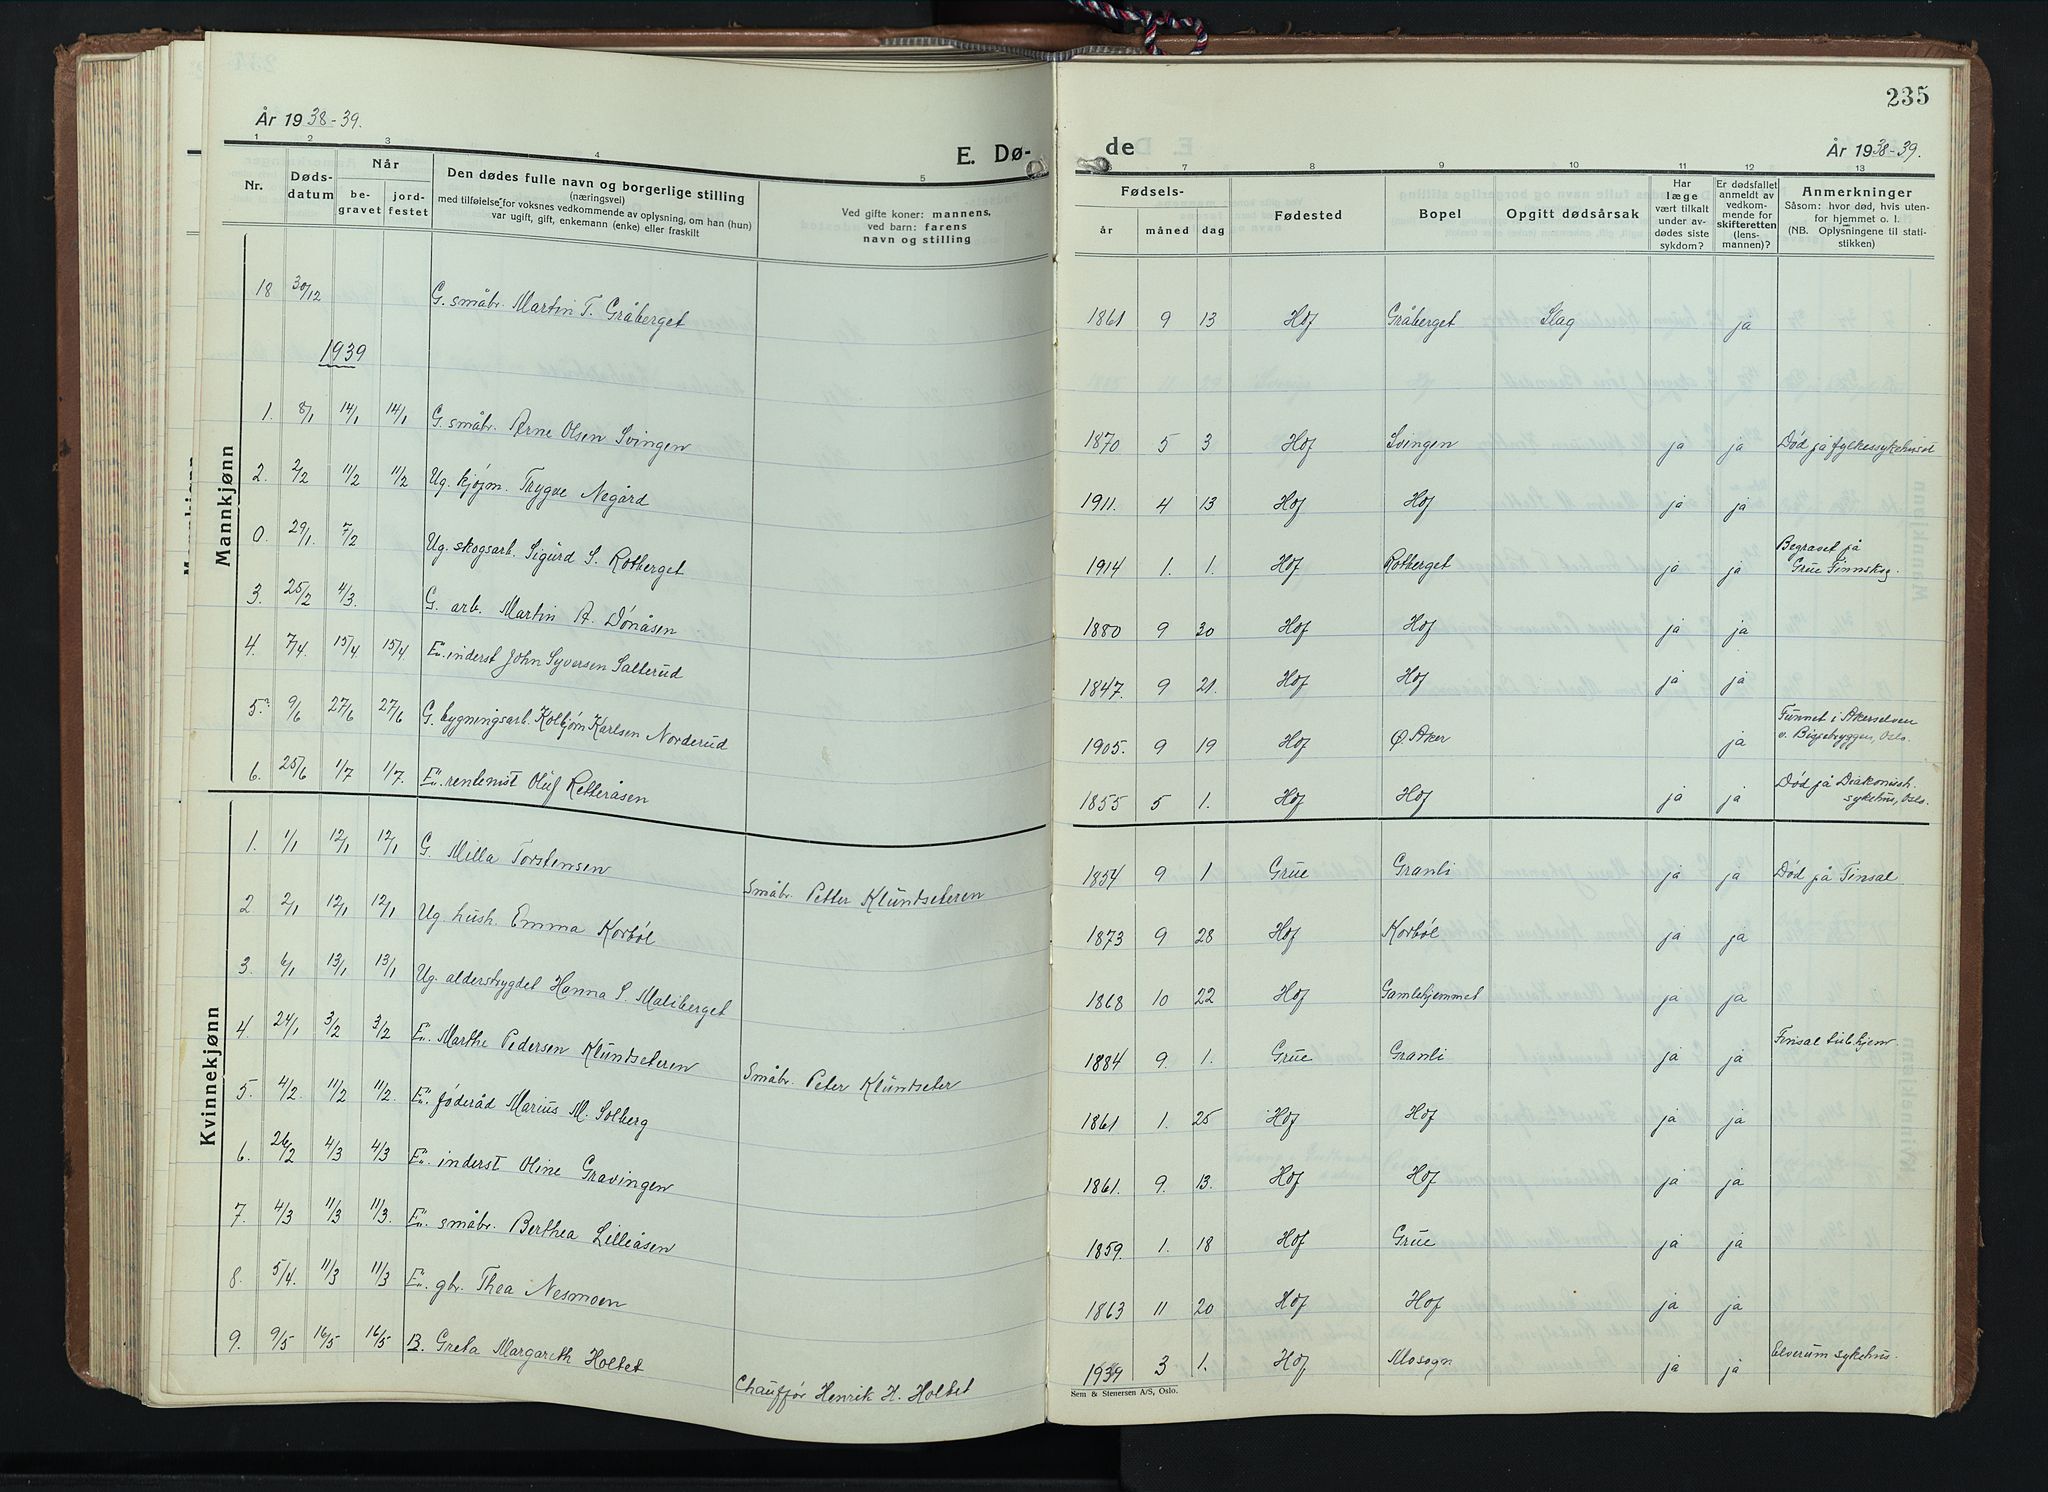 235
År 1938-39.
E. Dø-
de
År 1938-39.
1 2 3 4 5 6 7 8 9 10 11 12 13
Nr.
Døds-
datum
Når
be-
gravet
jord-
festet
Den dødes fulle navn og borgerlige stilling
(næringsvei)
med tilføielse for voksnes vedkommende av oplysning, om han (hun)
var ugift, gift, enkemann (enke) eller fraskilt
Ved gifte koner: mannens,
ved barn: farens
navn og stilling
Fødsels-
år måned dag
Fødested
Bopel
Opgitt dødsårsak
Har
læge
vært tilkalt
under av-
dødes siste
sykdom?
Er dødsfallet
anmeldt av
vedkom-
mende for
skifteretten
(lens-
mannen)?
Anmerkninger
Såsom: hvor død, hvis uten-
for hjemmet o. l.
(NB. Oplysningene til stati-
stikken)
Mannkjønn
18 30/12 G. småbr. Martin T. Gråberget 1861 9 13 Hof Gråberget Slag ja
1939
1. 8/1 14/1 14/1 G. småbr. Arne Olsen Svingen 1870 5 3 Hof Svingen ja ja Død på fylkessykehuset
2. 2/2 11/2 11/2 Ug. kjøpm. Trygve Negård 1911. 4 13 Hof Hof ja ja
0. 29/1. 7/2 Ug. skogsarb. Sigurd S. Rotberget 1914 1. 1. Hof Rotberget ja ja Begravet på
Grue Finnskog.
3. 25/2 4/3. G. arb. Martin A. Dónåsen 1880 9 30 Hof Hof ja ja
4. 7/4. 15/4 15/4 E. inderst John Syversen Satterud 1847. 9 21. Hof Hof ja ja
5. 9/6 27/6 27/6 G. bygningsarb. Kolbjørn Karlsen Norderud 1905. 9 19 Hof Ø. Aker ja Funnet i Akerselven
v. Bispebryggen, Oslo.
6. 25/6 1/7 1/7. E. rentenist Oluf Retteråsen 1855 5 1. Hof Hof ja ja Død på Diakonissh.
sykehus, Oslo.
Kvinnekjønn
1. 1/1 12/1 12/1 G. Milla Torstensen Småbr. Petter Klundseteren 1854 9 1 Grue Granli ja ja Død på Finsal
2 2/1 12/1 12/1 Ug. hush. Emma Korbøl 1873 9 28 Hof Korbøl ja ja
3. 6/1 13/1 13/1 Ug. alderstrygdet Hanna S. Maliberget 1868 10 22 Hof Gamlehjemmet ja ja
4 24/1 3/2 3/2 E. Marthe Pedersen Klundseteren Småbr. Peter Klundseter 1884 9. 1. Grue Granli ja ja Finsal tub.hjem.
5. 4/2. 11/2 11/2. E. føderåd Marius M. Solberg 1861 1. 25 Hof Hof ja ja
6. 26/2 4/3 4/3 E. inderst Oline Gravingen 1861. 9. 13. Hof Hof ja ja
7. 4/3 11/3 11/3. E. småbr. Berthea Lilleåsen 1859. 1. 18 Hof Grue ja ja
8. 5/4. 11/3 11/3 E. gbr. Thea Nesmoen 1863 11 20 Hof Hof ja ja
9. 9/5 16/5 16/5 B. Greta Margareth Holtet Chauffør Henrik H. Holtet 1939 3 1. Hof Mosogn ja ja Elverum sykehus.
Sem & Stenersen A/S, Oslo.